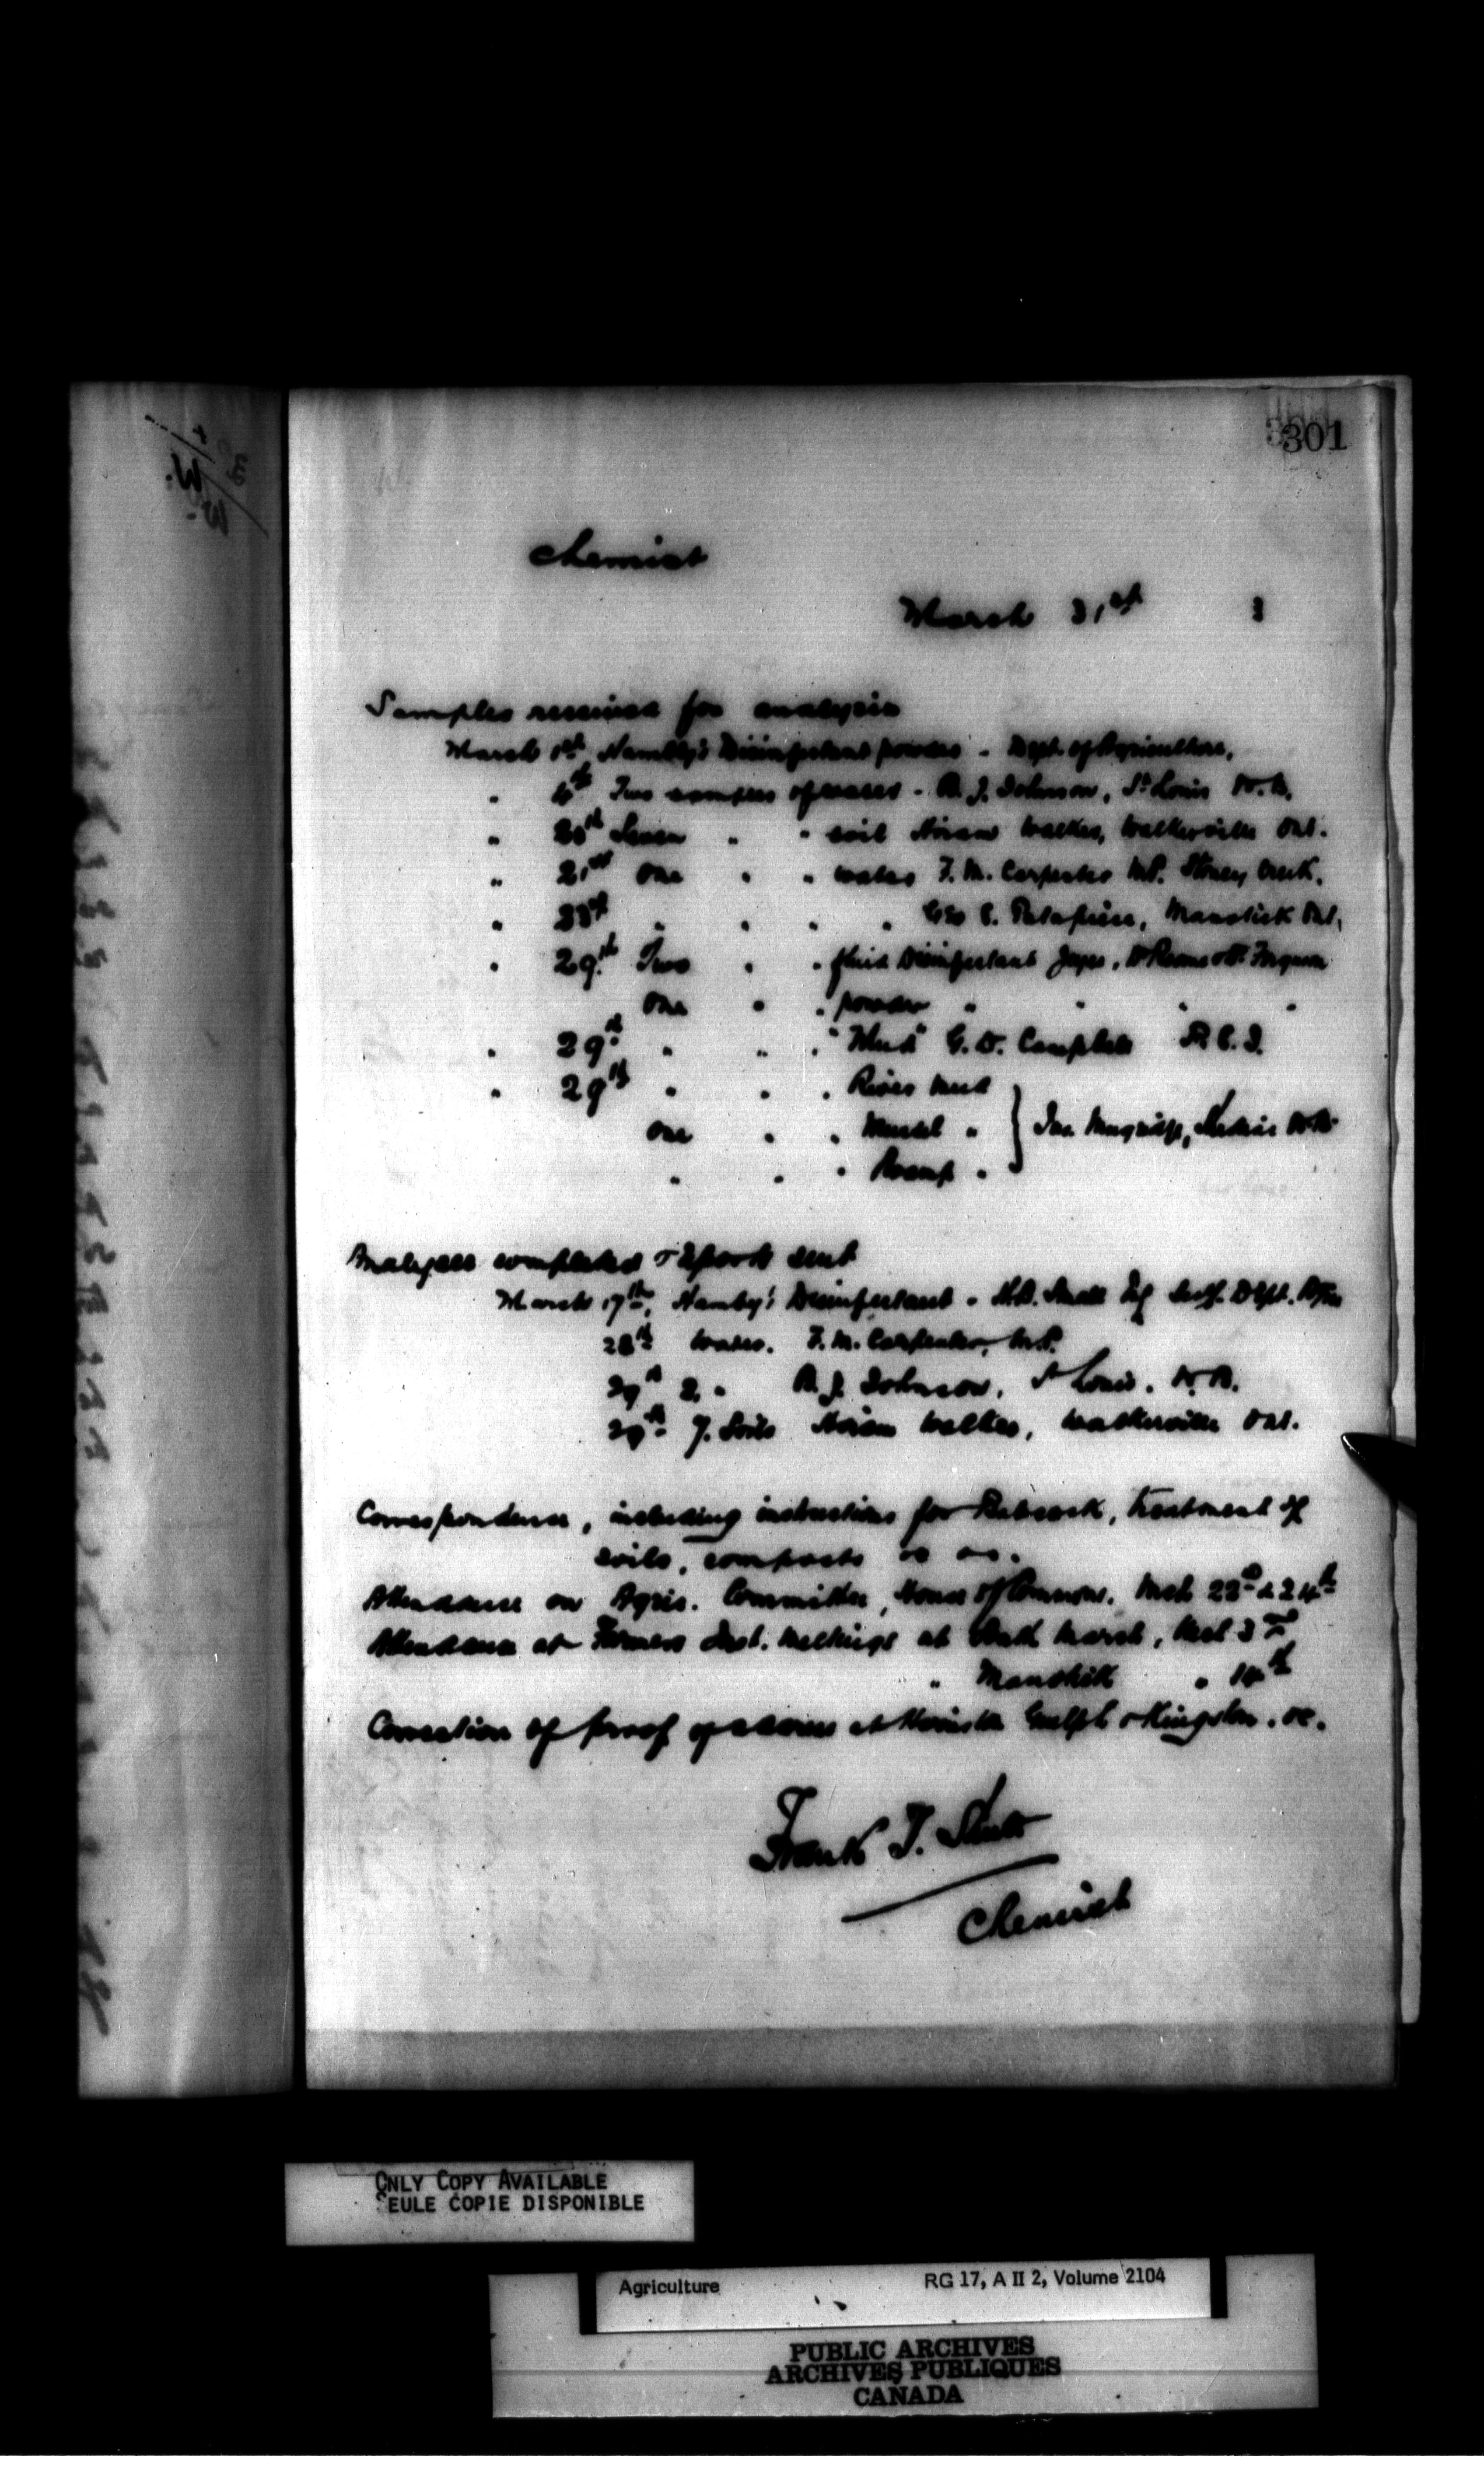 301
Chemist
March 31st 3
Samples received for analysis
March 1st Hamby's Disinfectant powder - Dept. of Agriculture,
" 4th Two samples of water - B. J. Johnson, St Louis N.B.
" 20th Seven " " soil Hiram Walker, Walkerville Ont.
" 21st One " " water F. M. Carpenter M.P. Stoney Creek.
" 23rd " " " " Geo E. Manotick Ont,
" 29th Two " " fluid Disinfectant Jeyes, Ferguson
One " " powder " " " "
" 29th " " " "Mud" G. D. Campbell P. E. I.
" 29th " " " River Mud
One " " Mussel " } Jno. N.B.
" " " Swamp "
Analyses completed & reports sent
March 17th, Hamby's Disinfectant - H.B. Small Dept.
28th Water. F. M. Carpenter, M.P.
29th 2. " B. J. Johnson, St Louis. N.B.
29th 7. Soils Hiram Walker, Walkerville Ont.
Correspondence, including instructions for Babcock, treatment of
soils, composts &c &c.
Attendance on Agric. Committee, House of Commons. Mch 22nd & 24th
Attendance at Farmers Inst. Meetings at South March, Mch 3rd
" Manotick " 14th
Correction of proof of at Guelph & Kingston. &c.
Frank T. Shutt
Chemist
ONLY COPY AVAILABLE
SEULE COPIE DISPONIBLE
Agriculture RG 17, A II 2, Volume 2104
PUBLIC ARCHIVES
ARCHIVES PUBLIQUES
CANADA